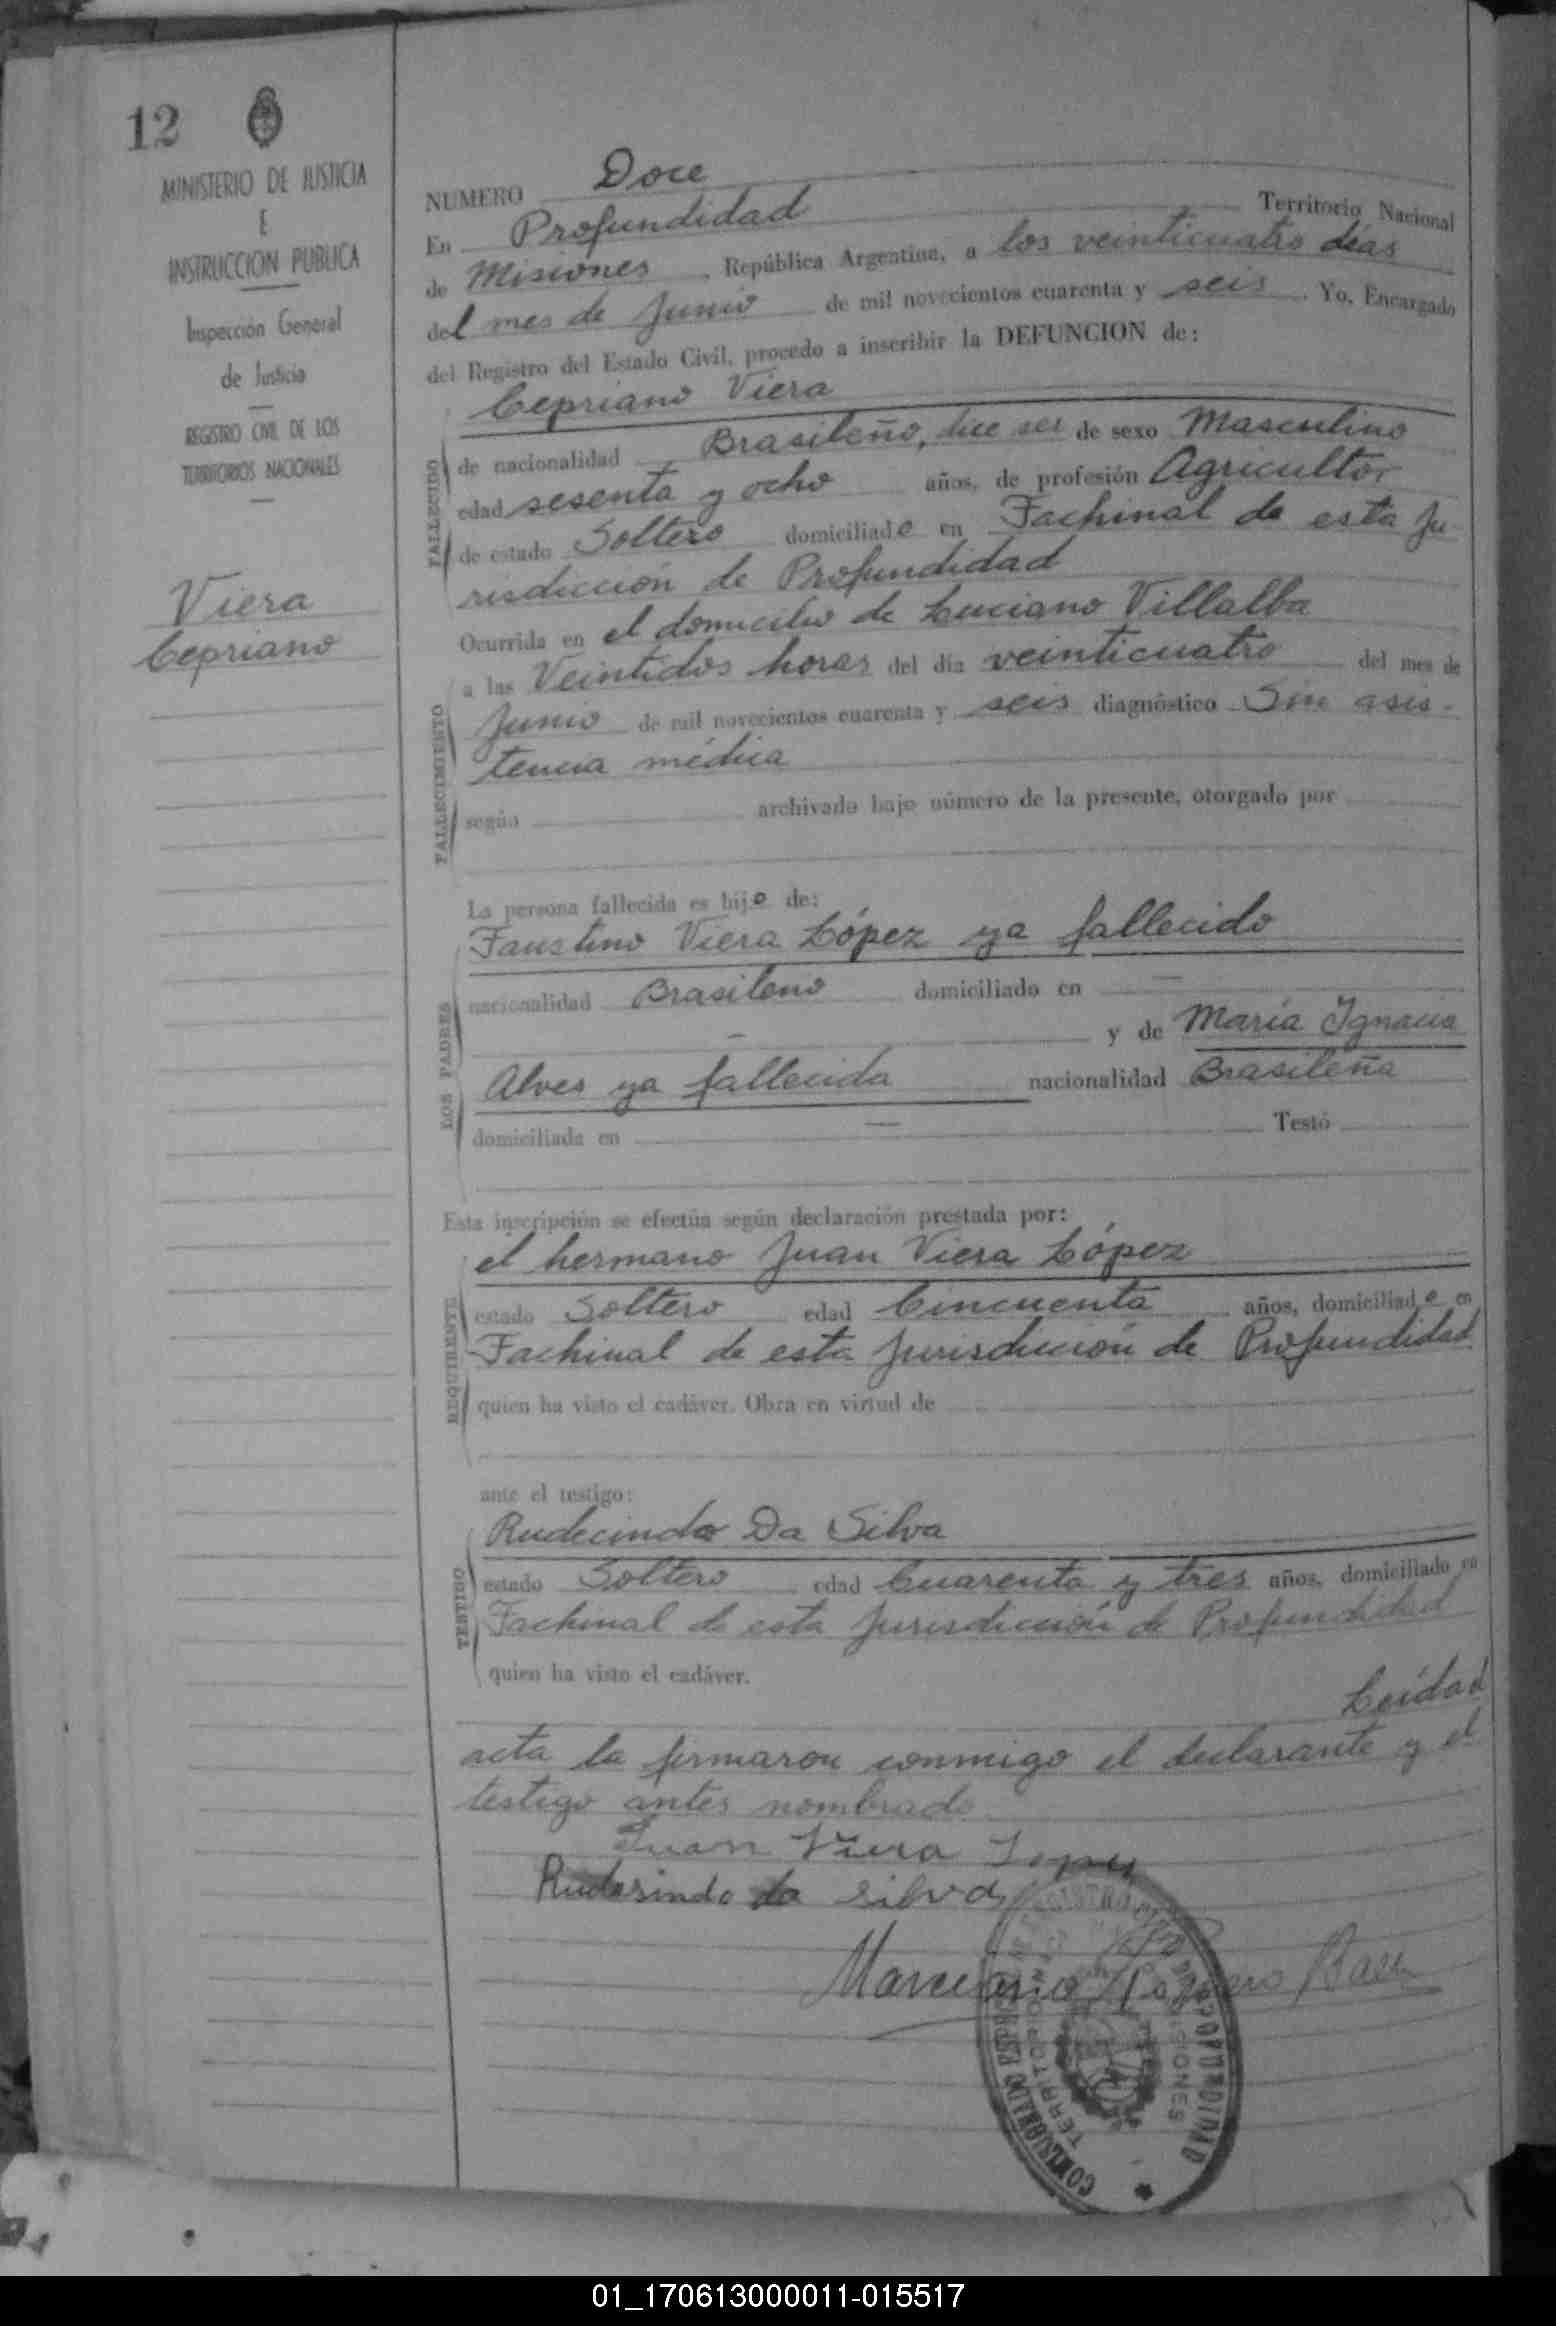 12
MINISTERIO DE JUSTICIA
E
INSTRUCCION PUBLICA
Inspección General
de Justicia
REGISTRO CIVIL DE LOS
TERRITORIOS NACIONALES
Viera
Cepriano
NUMERO Doce
En Profundidad Territorio Nacional
de Misiones, República Argentina, a los veinticuatro días
del mes de Junio de mil novecientos cuarenta y seis. Yo, Encargado
del Registro del Estado Civil, procedo a inscribir la DEFUNCION de:
Cepriano Viera
FALLECIDO
de nacionalidad Brasileño, dice ser de sexo Masculino
edad sesenta y ocho años, de profesión Agricultor
de estado Soltero domiciliado en Fachinal de esta Ju-
risdicción de Profundidad
Ocurrida en el domicilio de Luciano Villalba
FALLECIMIENTO
a las Veintidos horas del día veinticuatro del mes de
Junio de mil novecientos cuarenta y seis diagnóstico Sin asis-
tencia médica
según archivado bajo número de la presente, otorgado por
La persona fallecida es hijo de:
LOS PADRES
Faustino Viera López ya fallecido
nacionalidad Brasileno domiciliado en —
— y de María Ignacia
Alves ya fallecida nacionalidad Brasileña
domiciliada en — Testó
Esta inscripción se efectúa según declaración prestada por:
REQUIRENTE
el hermano Juan Viera López
estado Soltero edad Cincuenta años, domiciliado en
Fachinal de esta Jurisdicción de Profundidad
quien ha visto el cadáver. Obra en virtud de
ante el testigo:
TESTIGO
Rudecindo Da Silva
estado Soltero edad Cuarenta y tres años, domiciliado en
Fachinal de esta Jurisdicción de Profundidad
quien ha visto el cadáver.
Leída el
acta la firmaron conmigo el declarante y el
testigo antes nombrado
Juan Viera Lopez
Rudesindo da silva
Marceliano Baez
COMISIONADO REGISTRO PROFUNDIDAD
TERRITORIO NACIONAL MISIONES
01_170613000011-015517